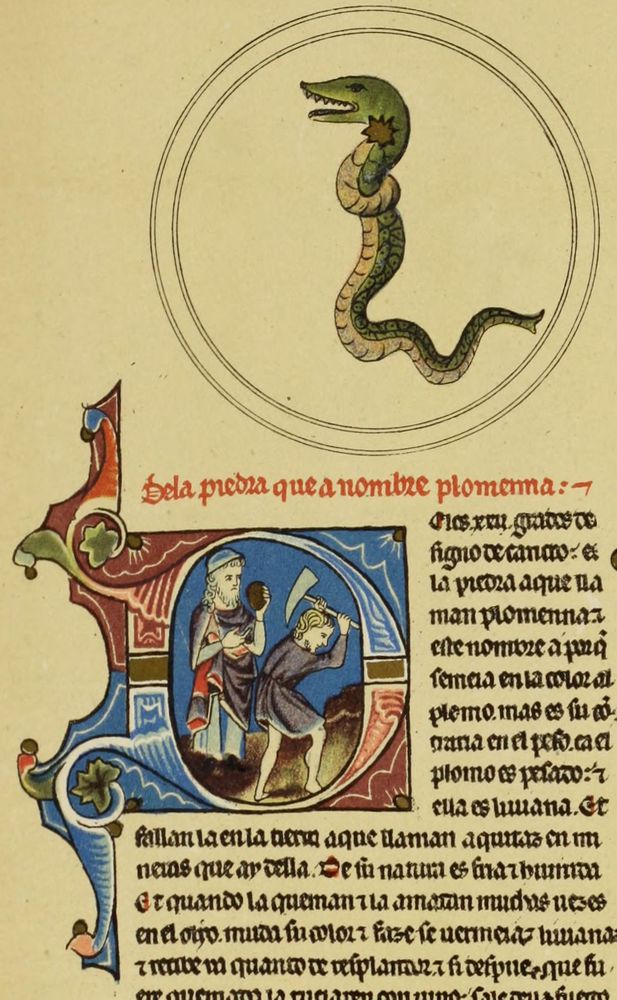 Dela piedra que a nombre plomenna:
signo de cancro: es
la piedra a que lla
man plomenna ⁊
este nombre a por q̃
semeia en la color al
plomo. mas es su cõ
traria en el peso. ca el
plomo es pesado: ⁊
ella es liuiana. Et
fallan la en la tierra a que llaman en mi
neras que ay della. De su natura es fria ⁊ humida
Et quando la queman ⁊ la amatan muchas uezes
en el muda su color ⁊ faze se uermeia ⁊ liuiana
⁊ recibe quanto de resplandor ⁊ si despues que fu